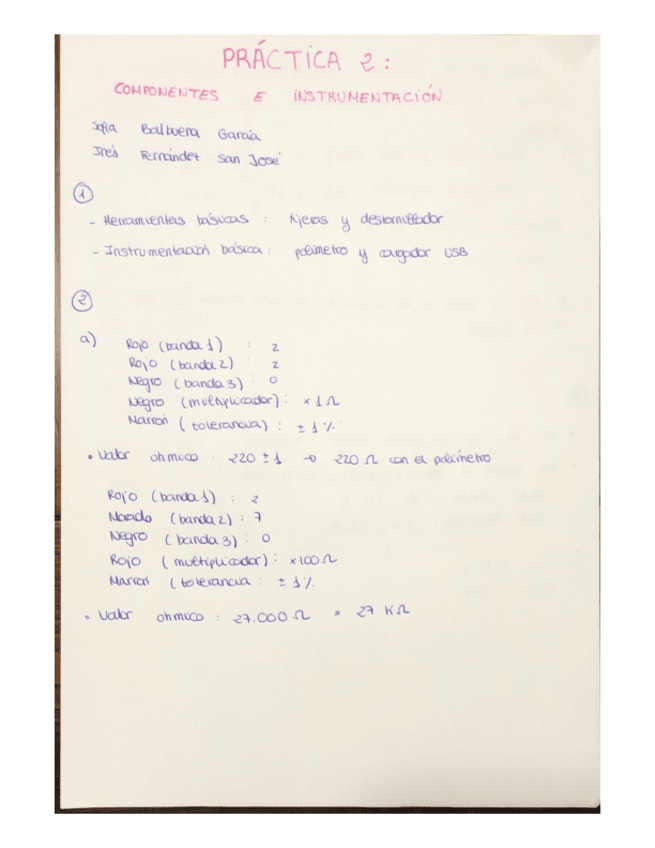 PRÁCTICA 2:
COMPONENTES E INSTRUMENTACIÓN
Sofía Balbuena García
Inés Fernández San José
1
- Herramientas básicas: tijeras y destornillador
- Instrumentación básica: polímetro y cargador USB
2
a)
Rojo (banda 1) : 2
Rojo (banda 2) : 2
Negro (banda 3) : 0
Negro (multiplicador): x 1 Ω
Marrón (tolerancia) : ± 1 %
• Valor ohmico : 220 ± 1 → 220 Ω con el polímetro
Rojo (banda 1) : 2
Morado (banda 2) : 7
Negro (banda 3) : 0
Rojo (multiplicador): x100 Ω
Marrón (tolerancia : ± 1 %
• Valor ohmico : 27.000 Ω = 27 KΩ